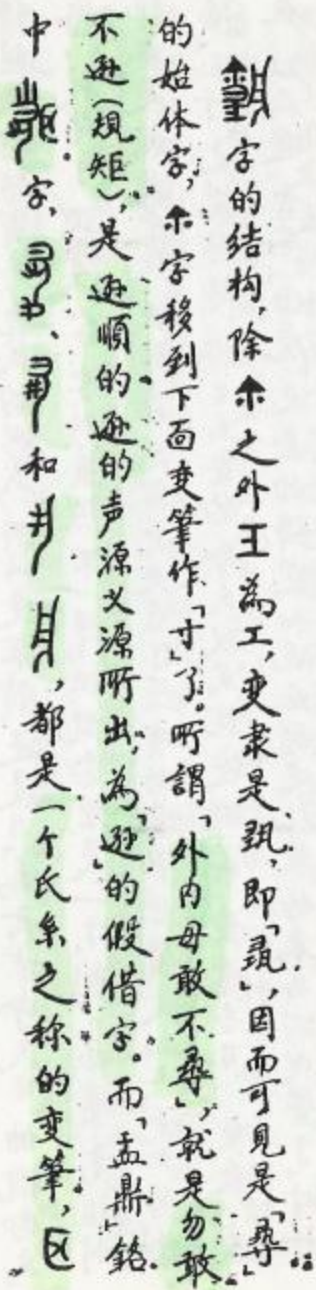 字的结构，除之外王為工，变隶是，即「」，因而可見是「」
的始体字，字移到下面变筆作「寸」了。所謂「外内毋敢不」，就是勿敢
不逊（規矩），是逊順的逊的声源义源所出，為「逊」的假借字。而「盂鼎」銘
中字、、和，都是一个氏系之称的变筆，区